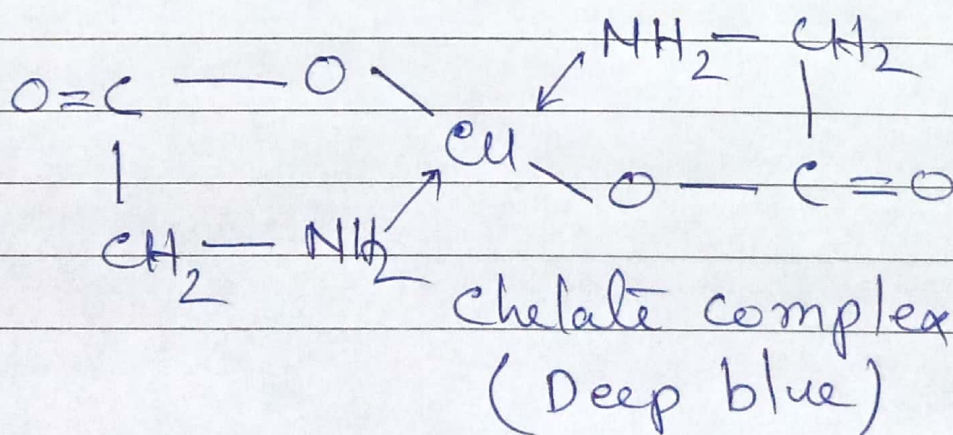 NH₂ — CH₂
O=C — O
Cu
O — C=O
CH₂ — NH₂
Chelate complex
(Deep blue)